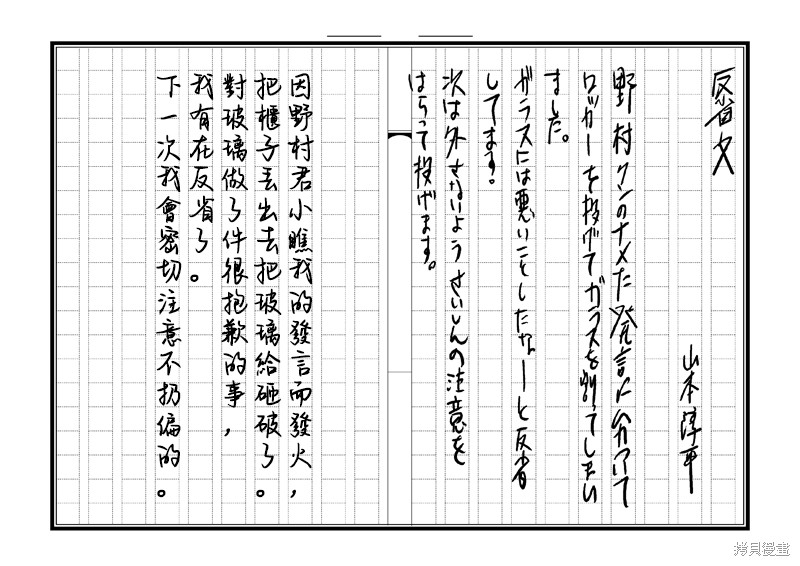 反省文
山本淳平
野村クンのナメた発言に分かいて
ロッカーを投げてガラスを割ってしまい
ました。
ガラスには悪いことしたなーと反省
してます。
次は外さないようさいしんの注意を
はらって投げます。
因野村君小瞧我的發言而發火，
把櫃子丟出去把玻璃給砸破了。
對玻璃做了件很抱歉的事，
我有在反省了。
下一次我會密切注意不扔偏的。
拷貝漫畫